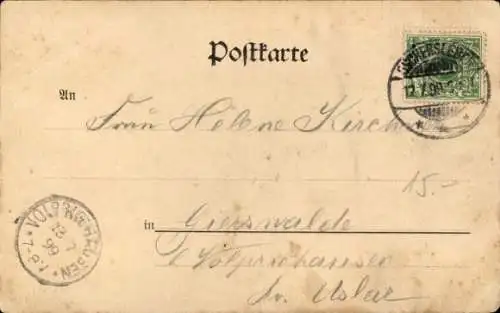 Postkarte
An
Frau Helene Kirch
15.-
in Gierswalde
Volpriehausen
Kr. Uslar
VOLPRIEHAUSEN
12 7
99
7-8